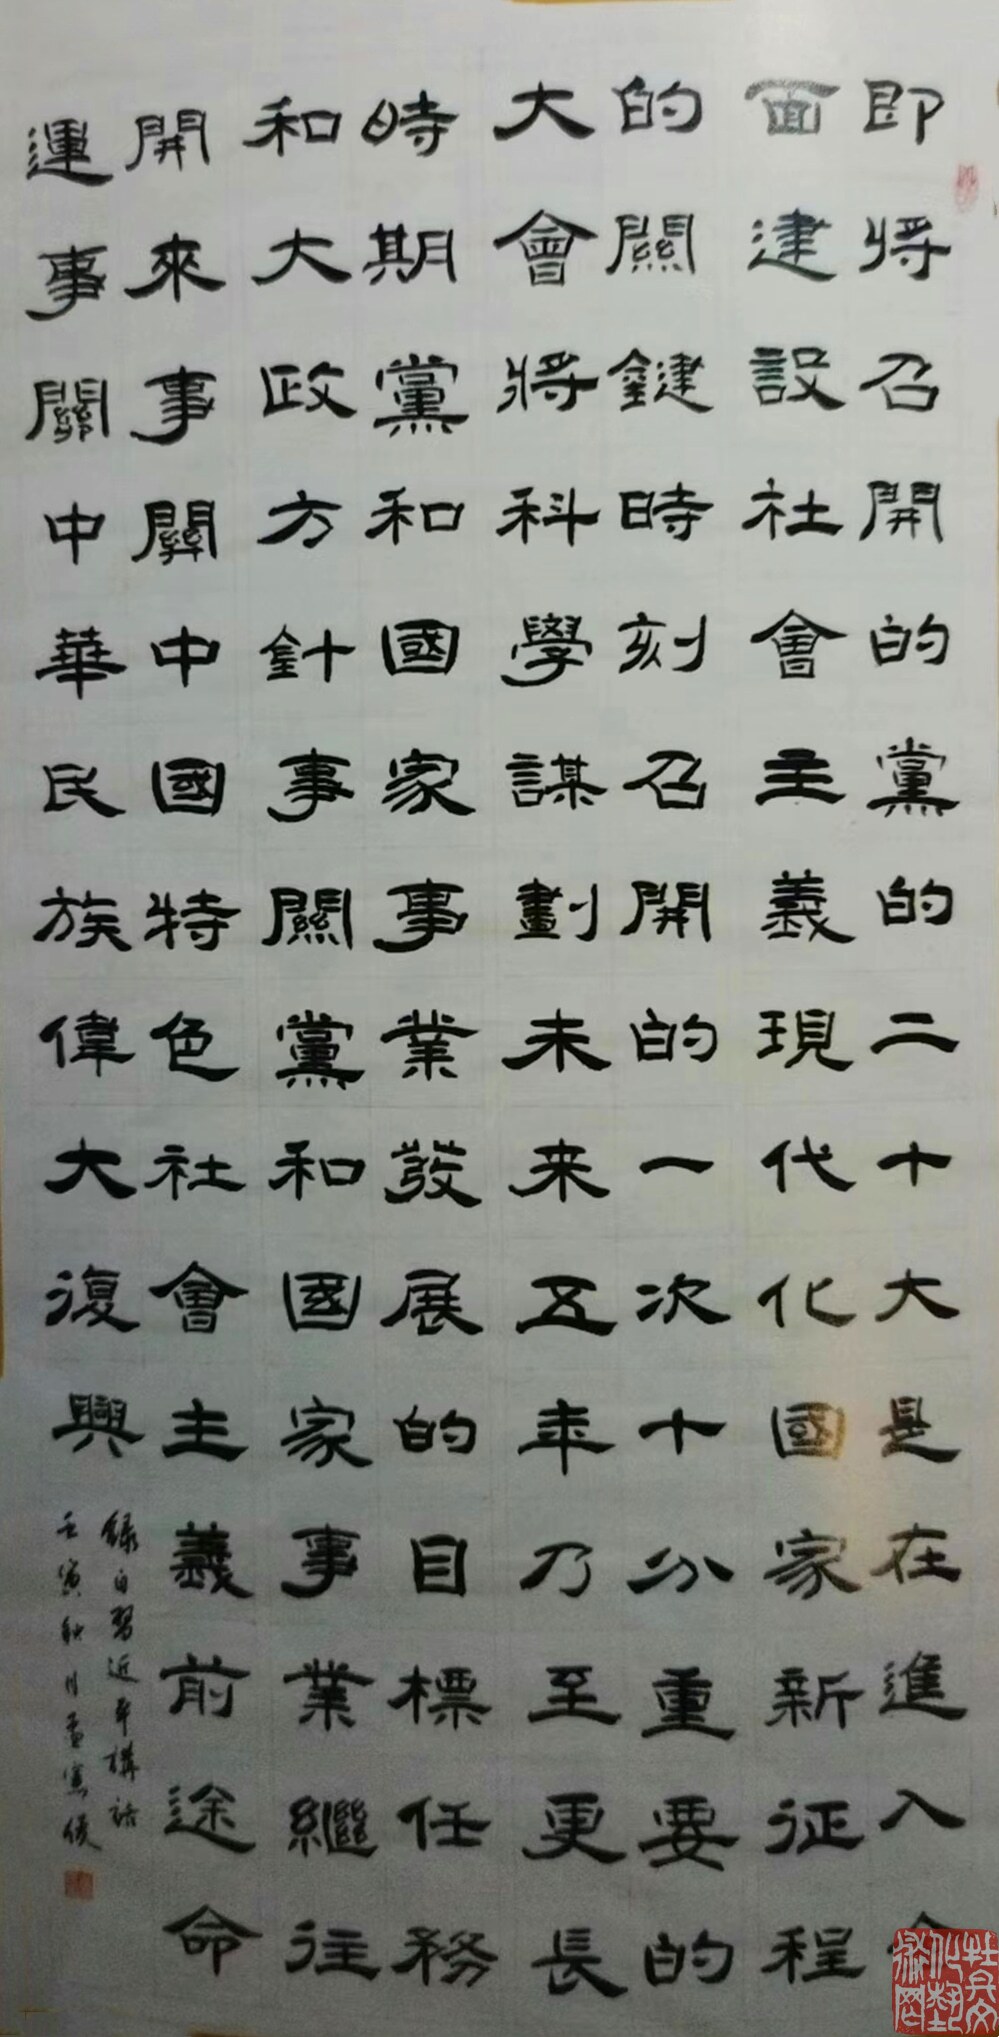 即將召開的黨的二十大是在進入全
面建設社會主義現代化國家新征程
的關鍵時刻召開的一次十分重要的
大會將科學謀劃未来五年乃至更長
時期黨和國家事業發展的目標任務
和大政方針事關黨和國家事業繼往
開來事關中國特色社會主義前途命
運事關中華民族偉大復興
錄自習近平講話
壬寅秋月孟憲俊